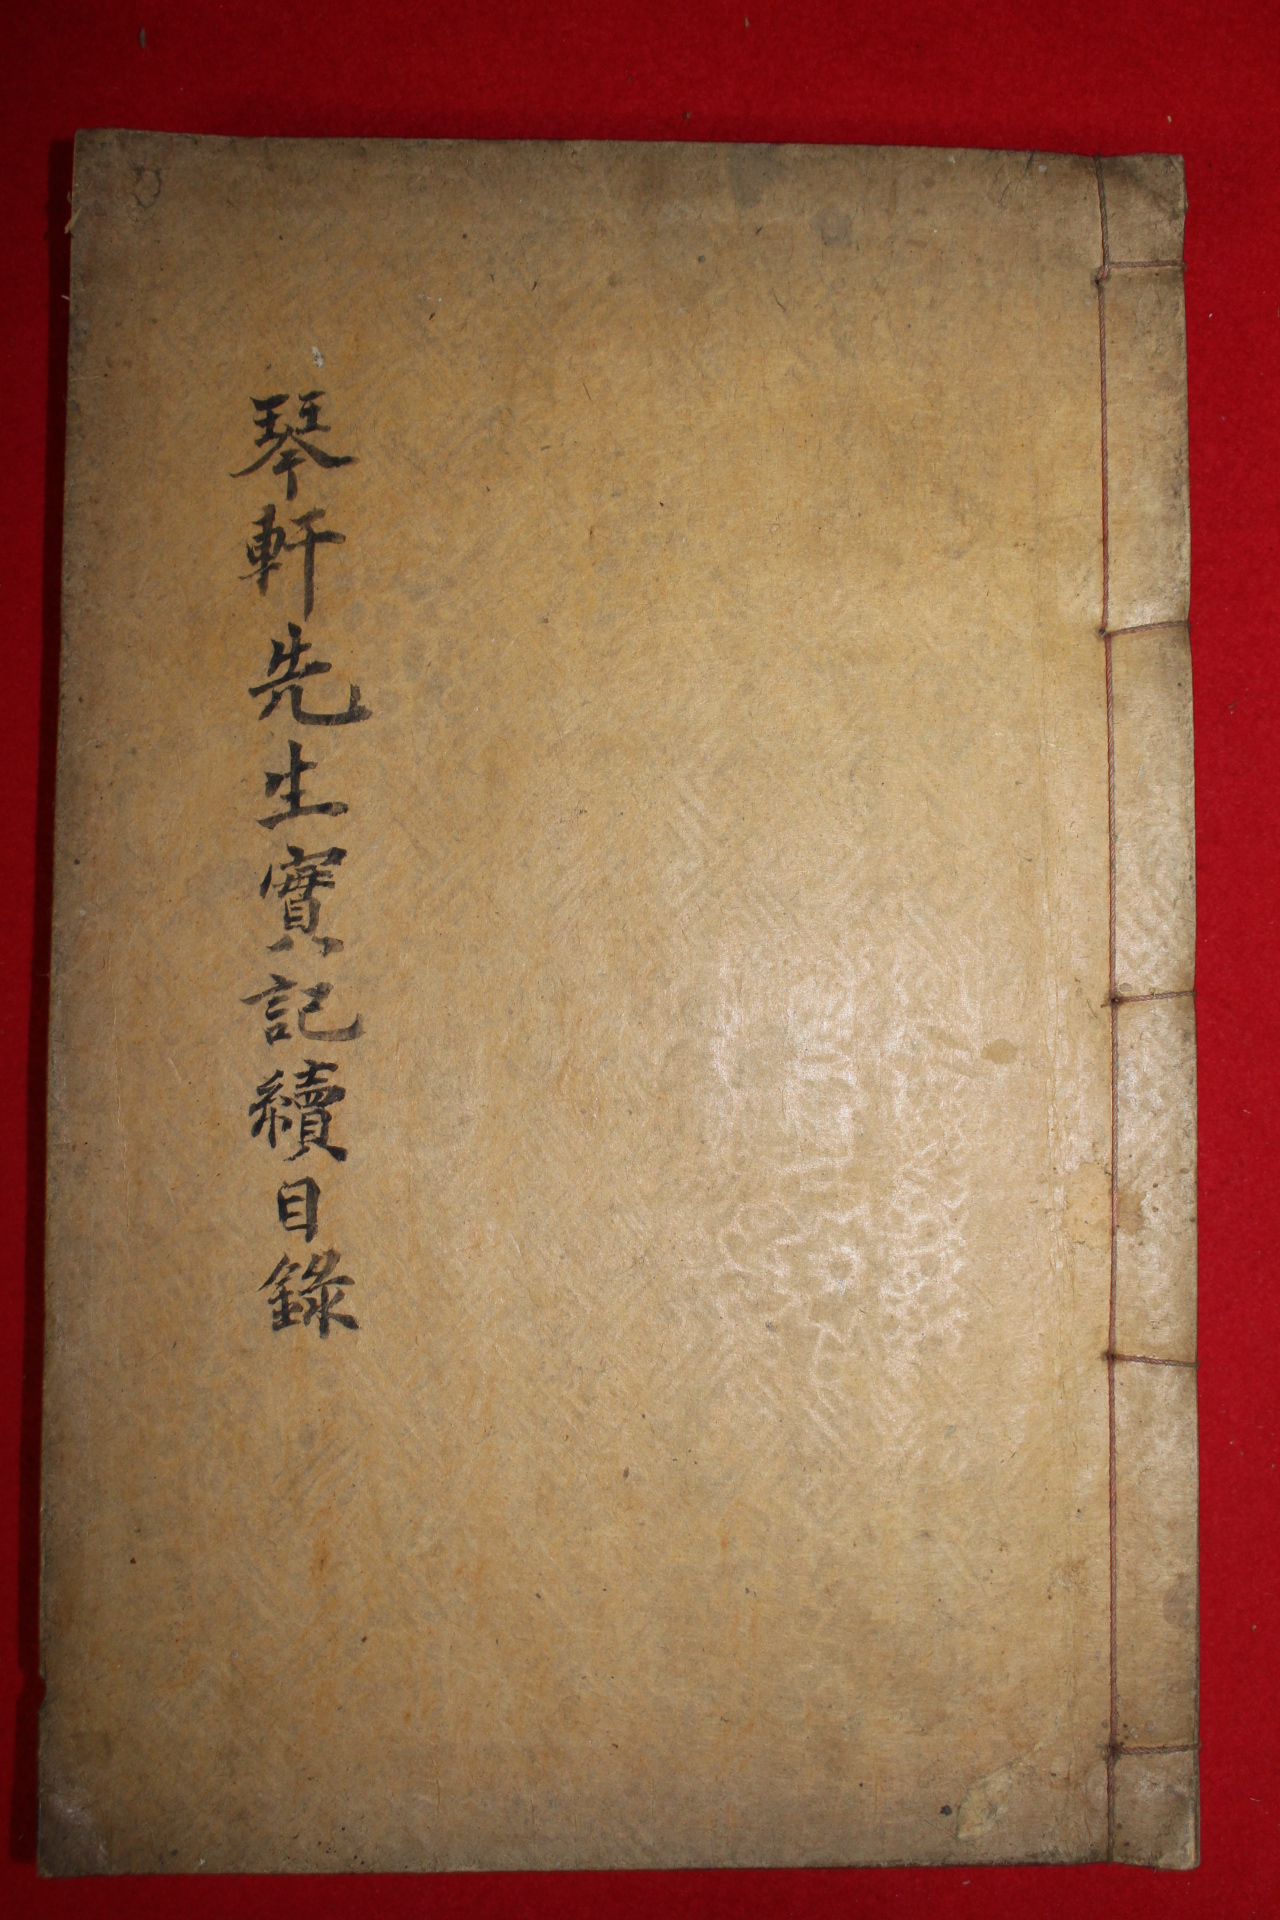 琴軒先生實記續目錄